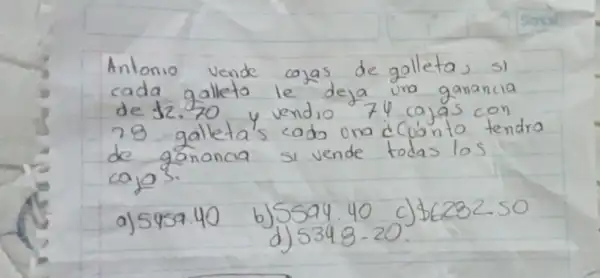 Antonio vende cajas de galleta, si
cada galleta le deja una ganancia
de $2.70 y vendio 74 cajas con
28 galleta's cada una ¿Cuánto tendra
de ganancia si vende todas las
cajas.
a) 5959.40 b) 5594.40 c) $6282.50
d) 5348-20.